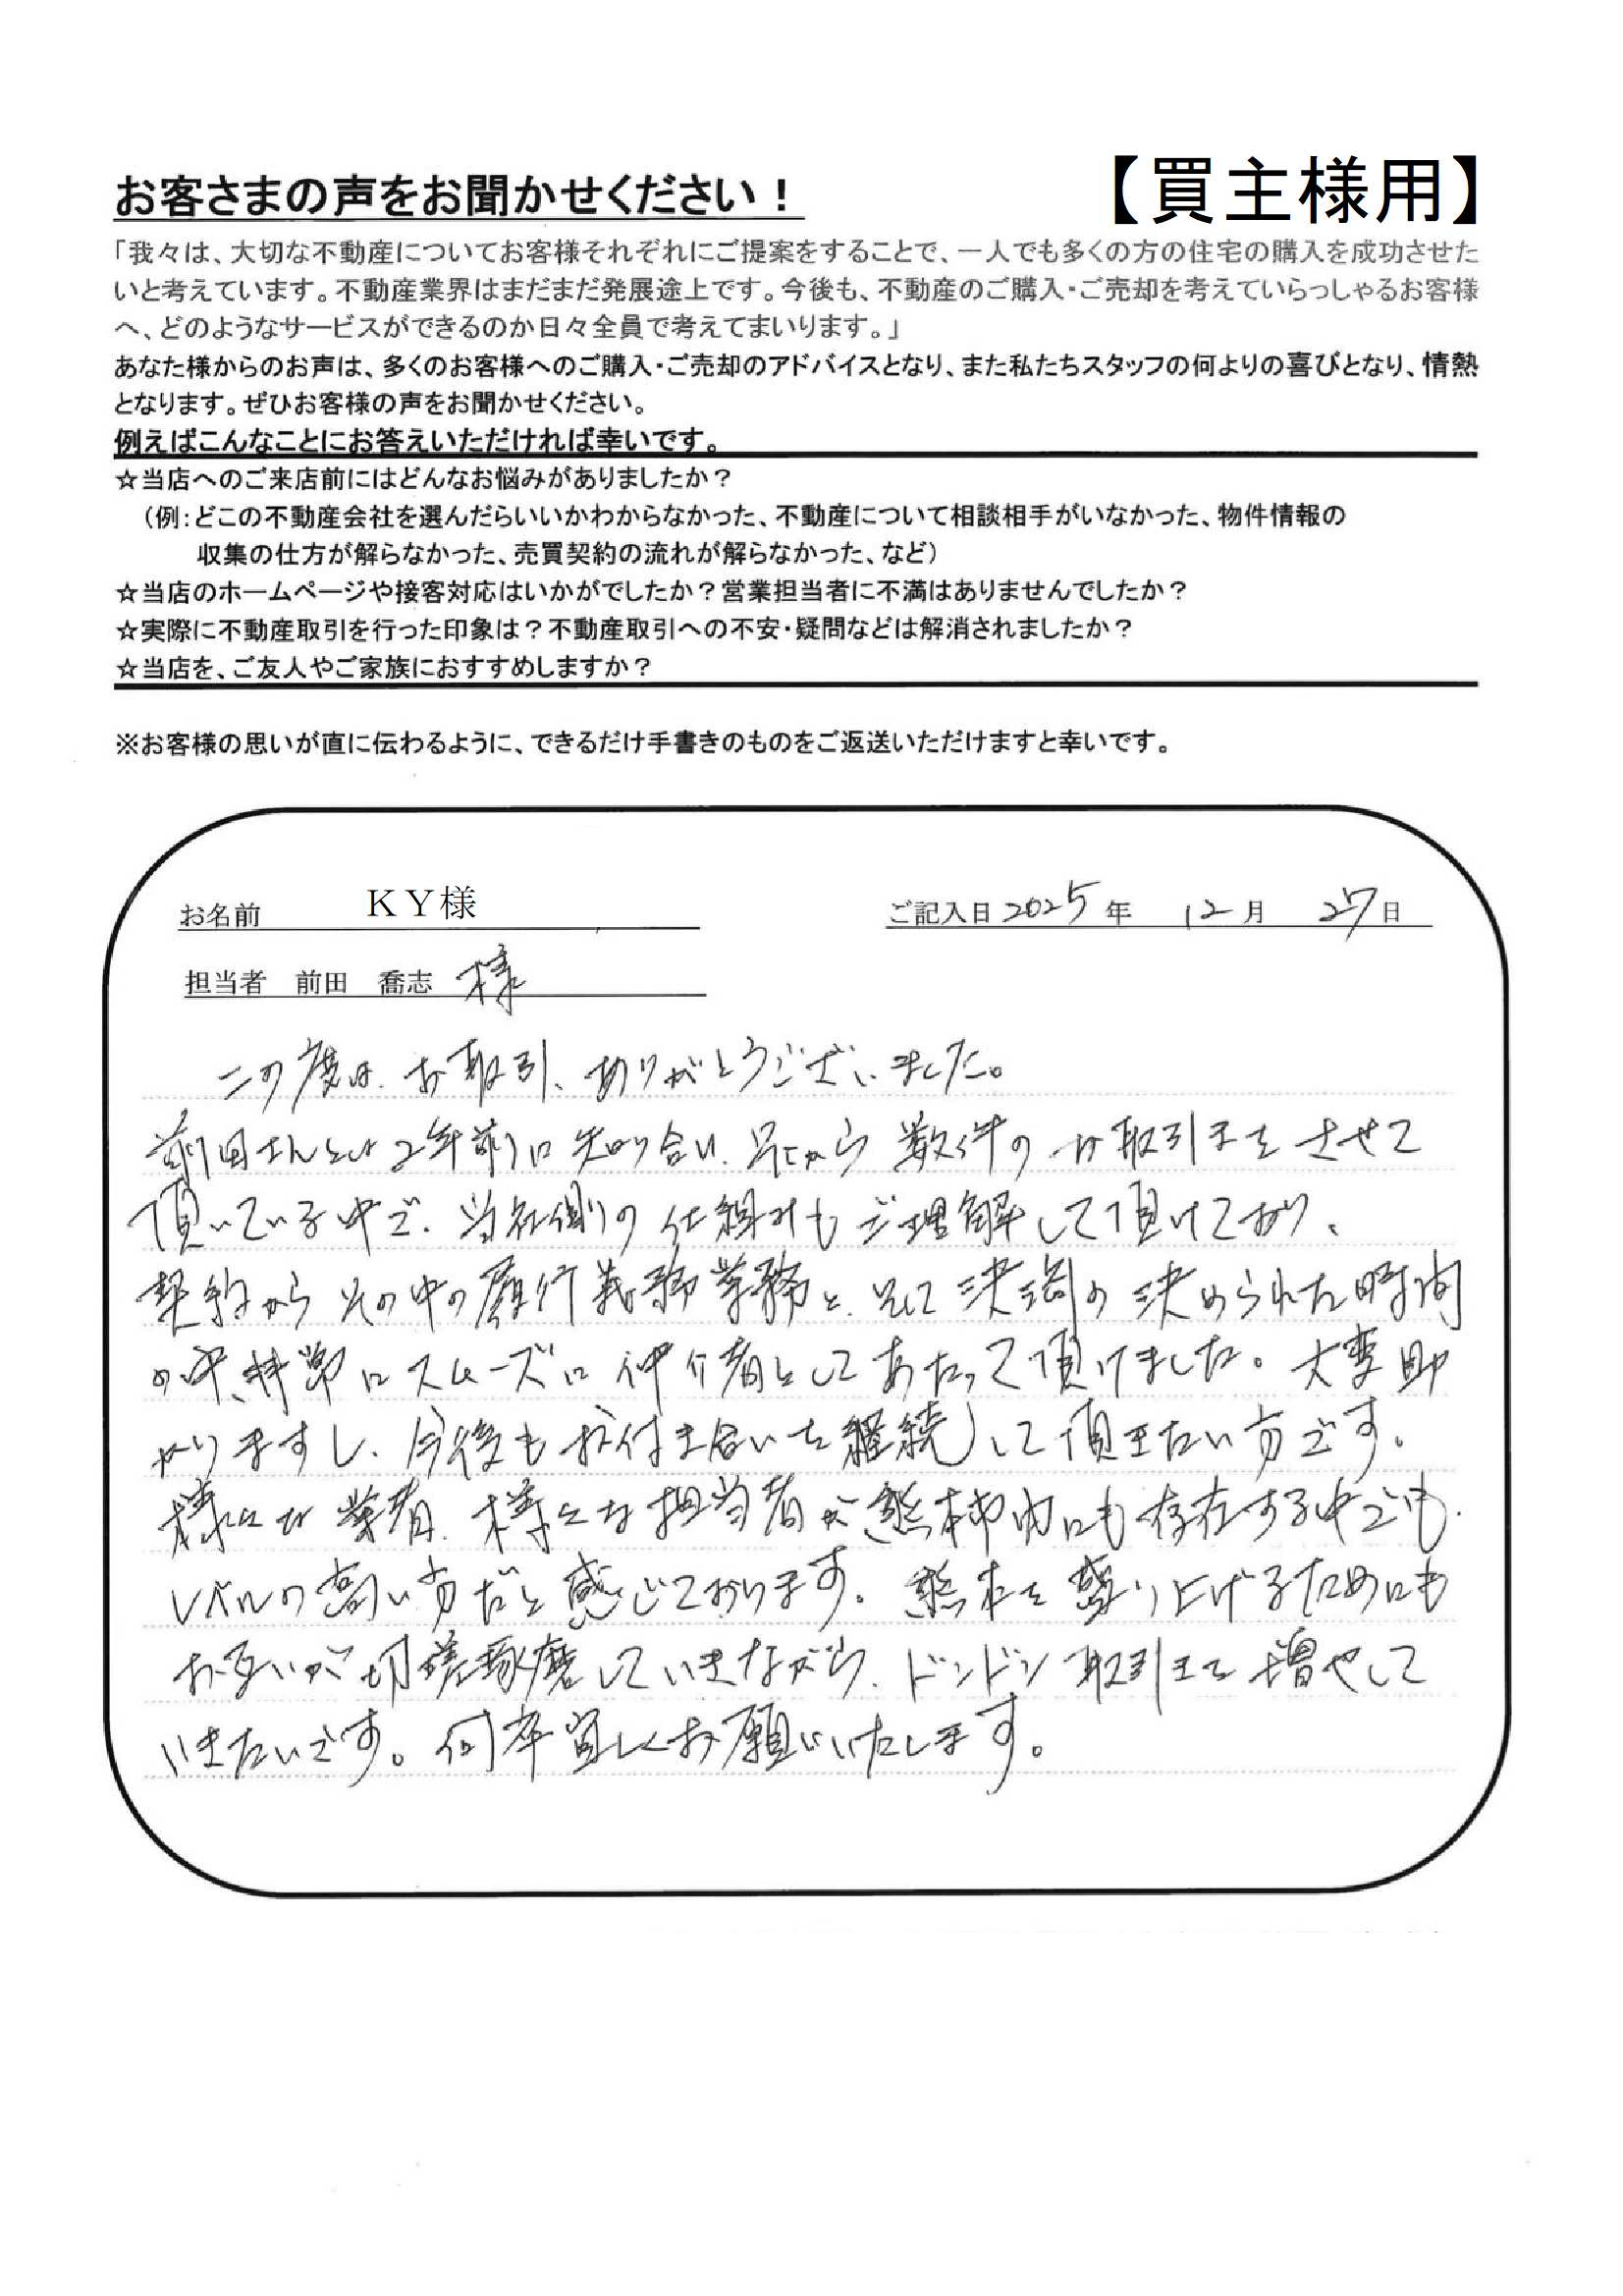 お客さまの声をお聞かせください！
【買主様用】
「我々は、大切な不動産についてお客様それぞれにご提案をすることで、一人でも多くの方の住宅の購入を成功させた
いと考えています。不動産業界はまだまだ発展途上です。今後も、不動産のご購入・ご売却を考えていらっしゃるお客様
へ、どのようなサービスができるのか日々全員で考えてまいります。」
あなた様からのお声は、多くのお客様へのご購入・ご売却のアドバイスとなり、また私たちスタッフの何よりの喜びとなり、情熱
となります。ぜひお客様の声をお聞かせください。
例えばこんなことにお答えいただければ幸いです。
☆当店へのご来店前にはどんなお悩みがありましたか？
（例：どこの不動産会社を選んだらいいかわからなかった、不動産について相談相手がいなかった、物件情報の
収集の仕方が解らなかった、売買契約の流れが解らなかった、など）
☆当店のホームページや接客対応はいかがでしたか？営業担当者に不満はありませんでしたか？
☆実際に不動産取引を行った印象は？不動産取引への不安・疑問などは解消されましたか？
☆当店を、ご友人やご家族におすすめしますか？
※お客様の思いが直に伝わるように、できるだけ手書きのものをご返送いただけますと幸いです。
お名前 ＫＹ様
ご記入日 2025年 12月 27日
担当者 前田 喬志 様
この度は、お取引、ありがとうございました。
前田さんとは2年前に知り合い、そこから数件のお取引をさせて
頂いている中で、当社側の仕組みもご理解して頂けており、
契約からその中の履行義務業務と、そして決済の決められた時間
の中、非常にスムーズに仲介者としてあたって頂けました。大変助
かりますし、今後もお付き合いを継続して頂きたい方です。
様々な業者、様々な担当者が熊本市内にも存在する中でも、
レベルの高い方だと感じております。熊本を盛り上げるためにも
お互いが切磋琢磨していきながら、ドンドン取引を増やして
いきたいです。何卒宜しくお願いいたします。